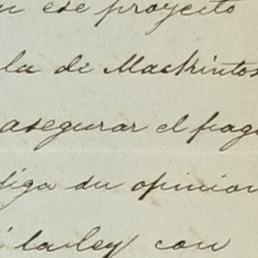 en ese proyecto
la de Mackintos
asegurar el pago
diga su opinion
laley con